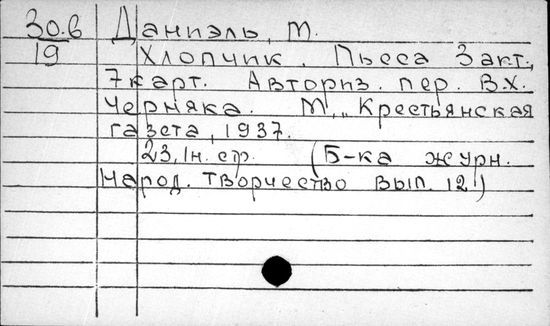 30.б Даниэль, М.
19 Хлопчик. Пьеса 3 акт.,
7 карт. Авториз. пер. В.Х.
Черняка. М., „Крестьянская
газета, 1937.
23, 1н. ср. (Б-ка журн.
Народ. творчество вып. 12)